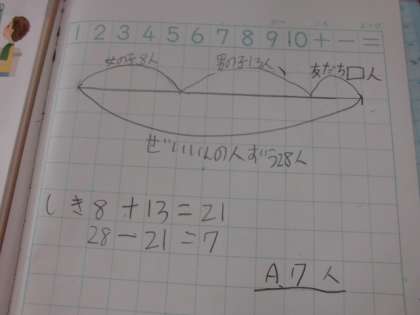 1 2 3 4 5 6 7 8 9 10 + - =
女の子8人 男の子13人 友だち□人
ぜいいんの人ずう28人
しき 8+13=21
28-21=7
A.7人